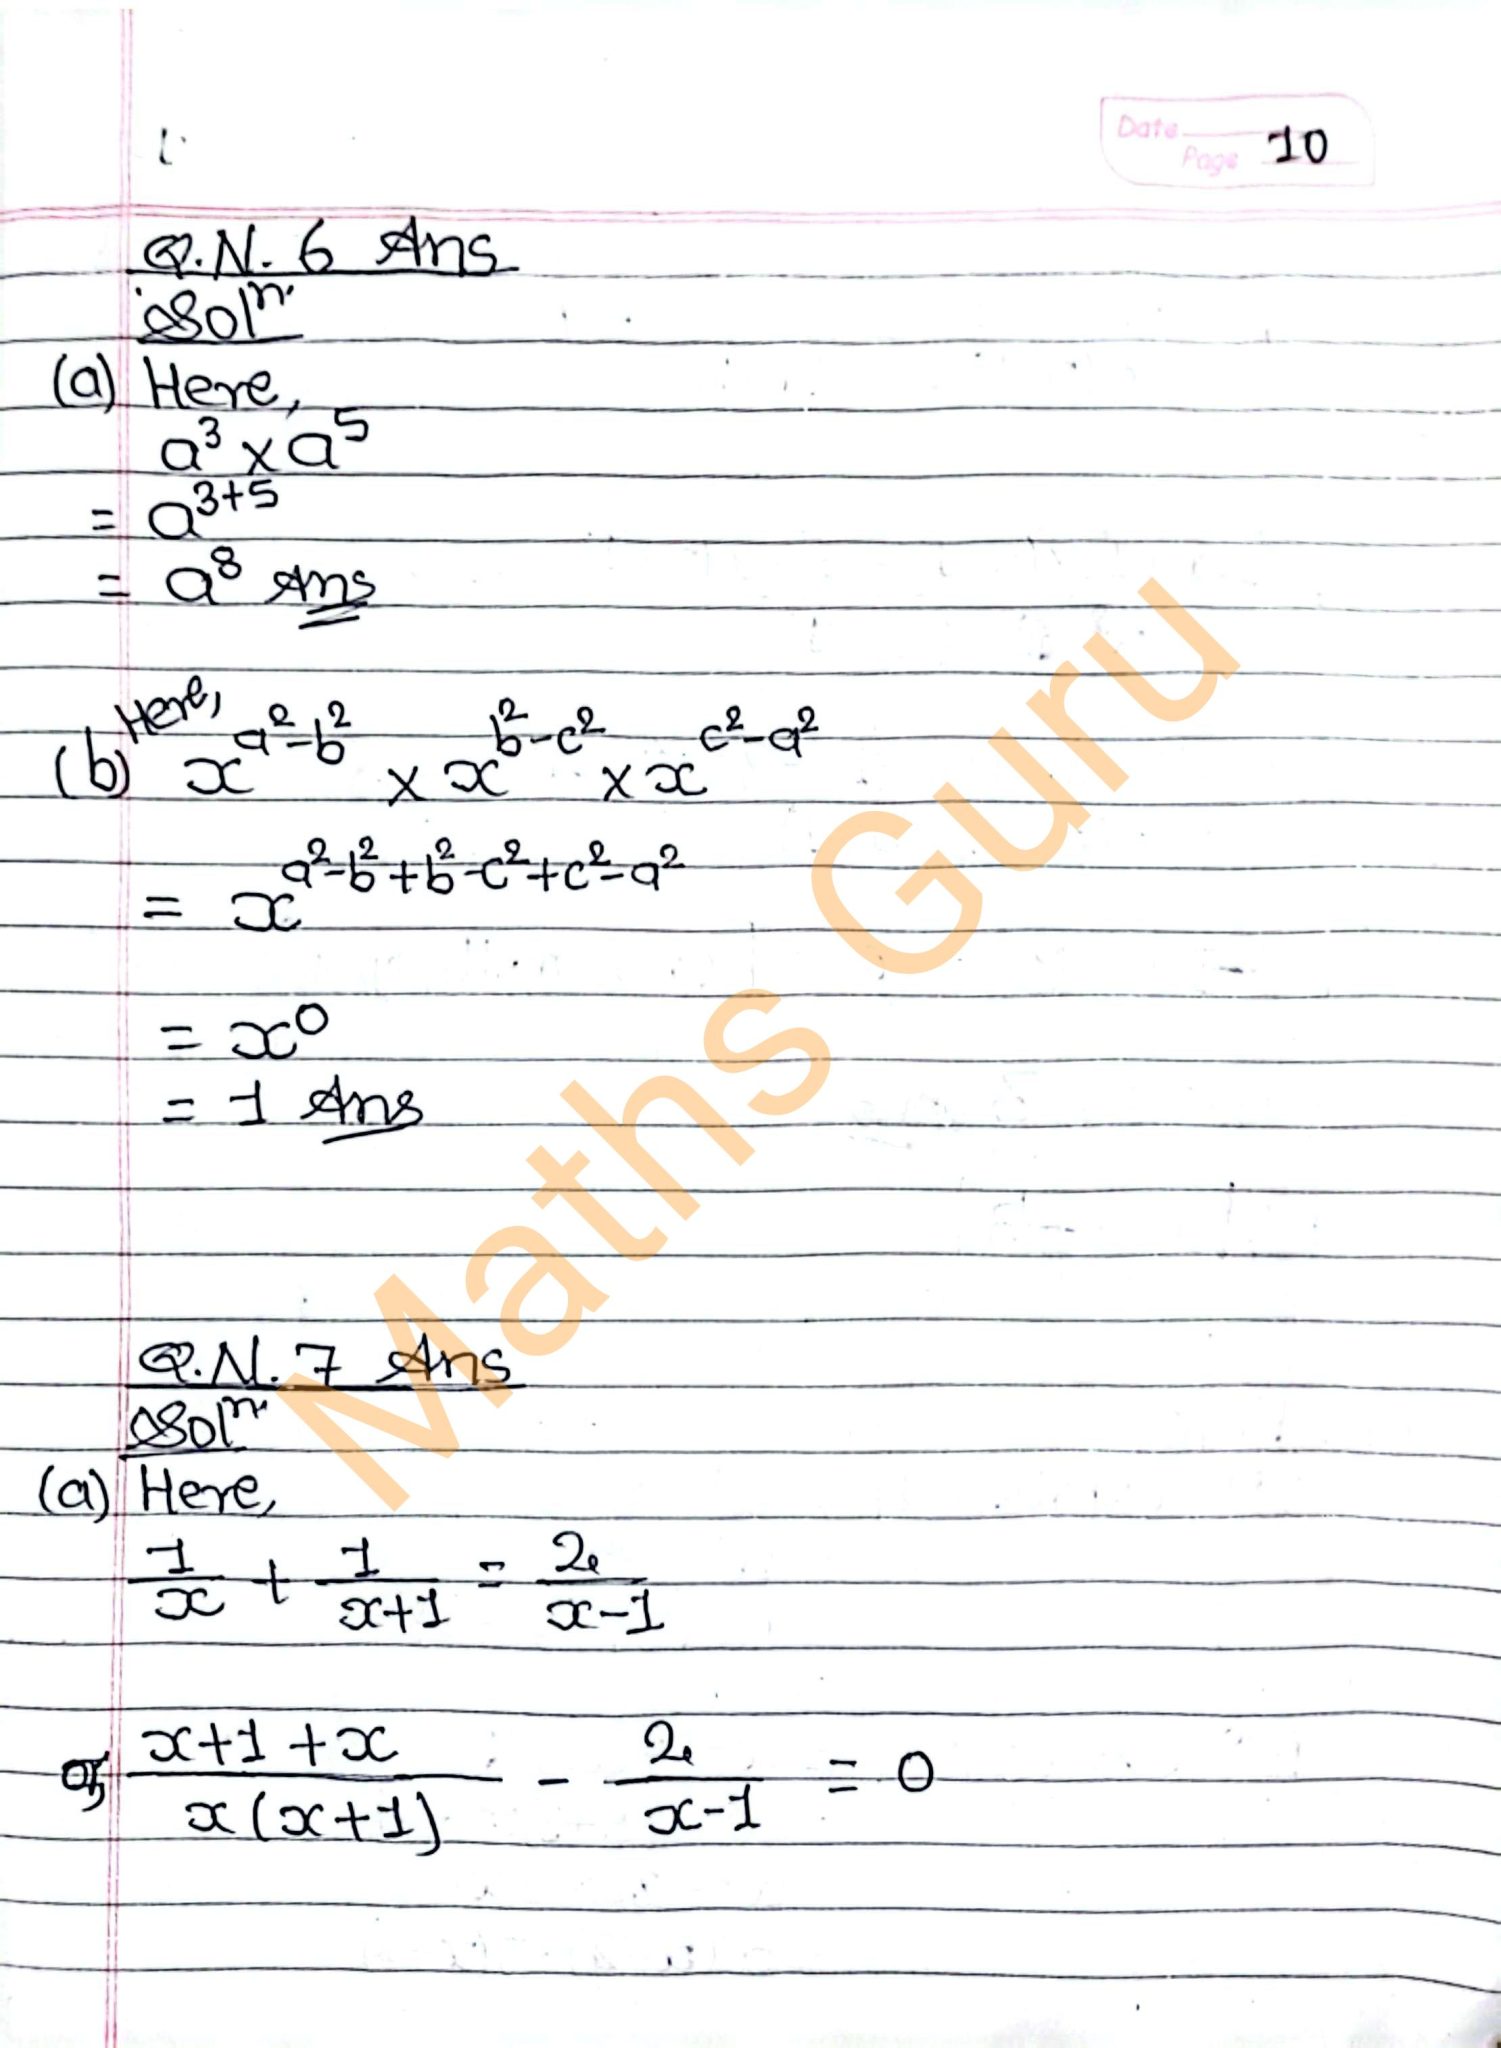 Date
Page 10
Q.N. 6 Ans
Solⁿ.
(a) Here,
a³ × a⁵
= a³⁺⁵
= a⁸ Ans
Here,
(b) x^(a²-b²) × x^(b²-c²) × x^(c²-a²)
= x^(a²-b²+b²-c²+c²-a²)
= x⁰
= 1 Ans
Q.N. 7 Ans
Solⁿ.
(a) Here,
1/x + 1/(x+1) = 2/(x-1)
or, (x+1+x)/(x(x+1)) - 2/(x-1) = 0
Maths Guru